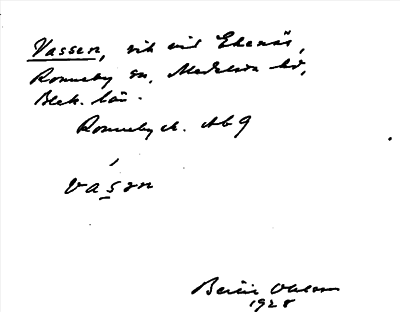 Vassen, vik vid Ekenäs,
Ronneby sn, Medelsta hd,
Blek. län.
Ronneby ek. Ab 9
vasən
Bertil Ohlsson
1928